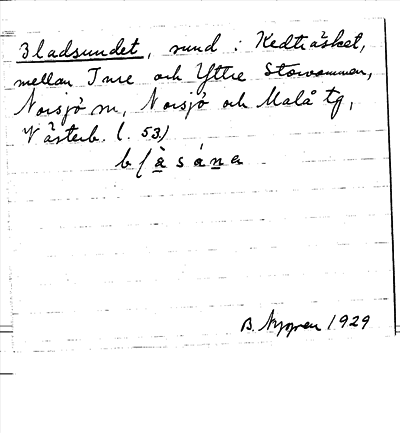 Bladsundet, sund i Kedträsket,
mellan Inre och Yttre Storvammen,
Norsjö sn, Norsjö och Malå tg,
Västerb. l. 53)
B. Nygren 1929